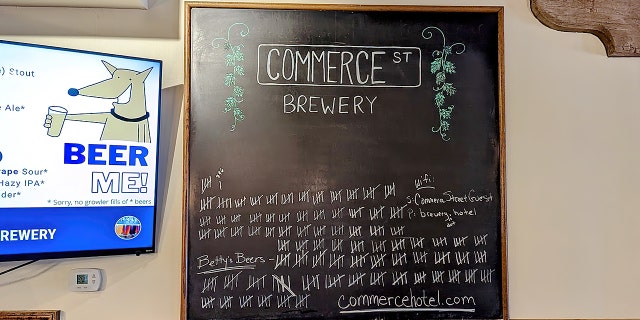 ) Stout
e Ale*
BEER
ME!
rape Sour*
Hazy IPA*
der*
* Sorry, no growler fills of * beers
REWERY
COMMERCE ST
BREWERY
wifi:
S: Commerce Street Guest
P: brewery.hotel
Betty's Beers -
commercehotel.com